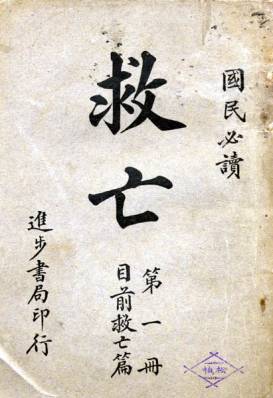 國民必讀
救亡
第一冊
目前救亡篇
進步書局印行